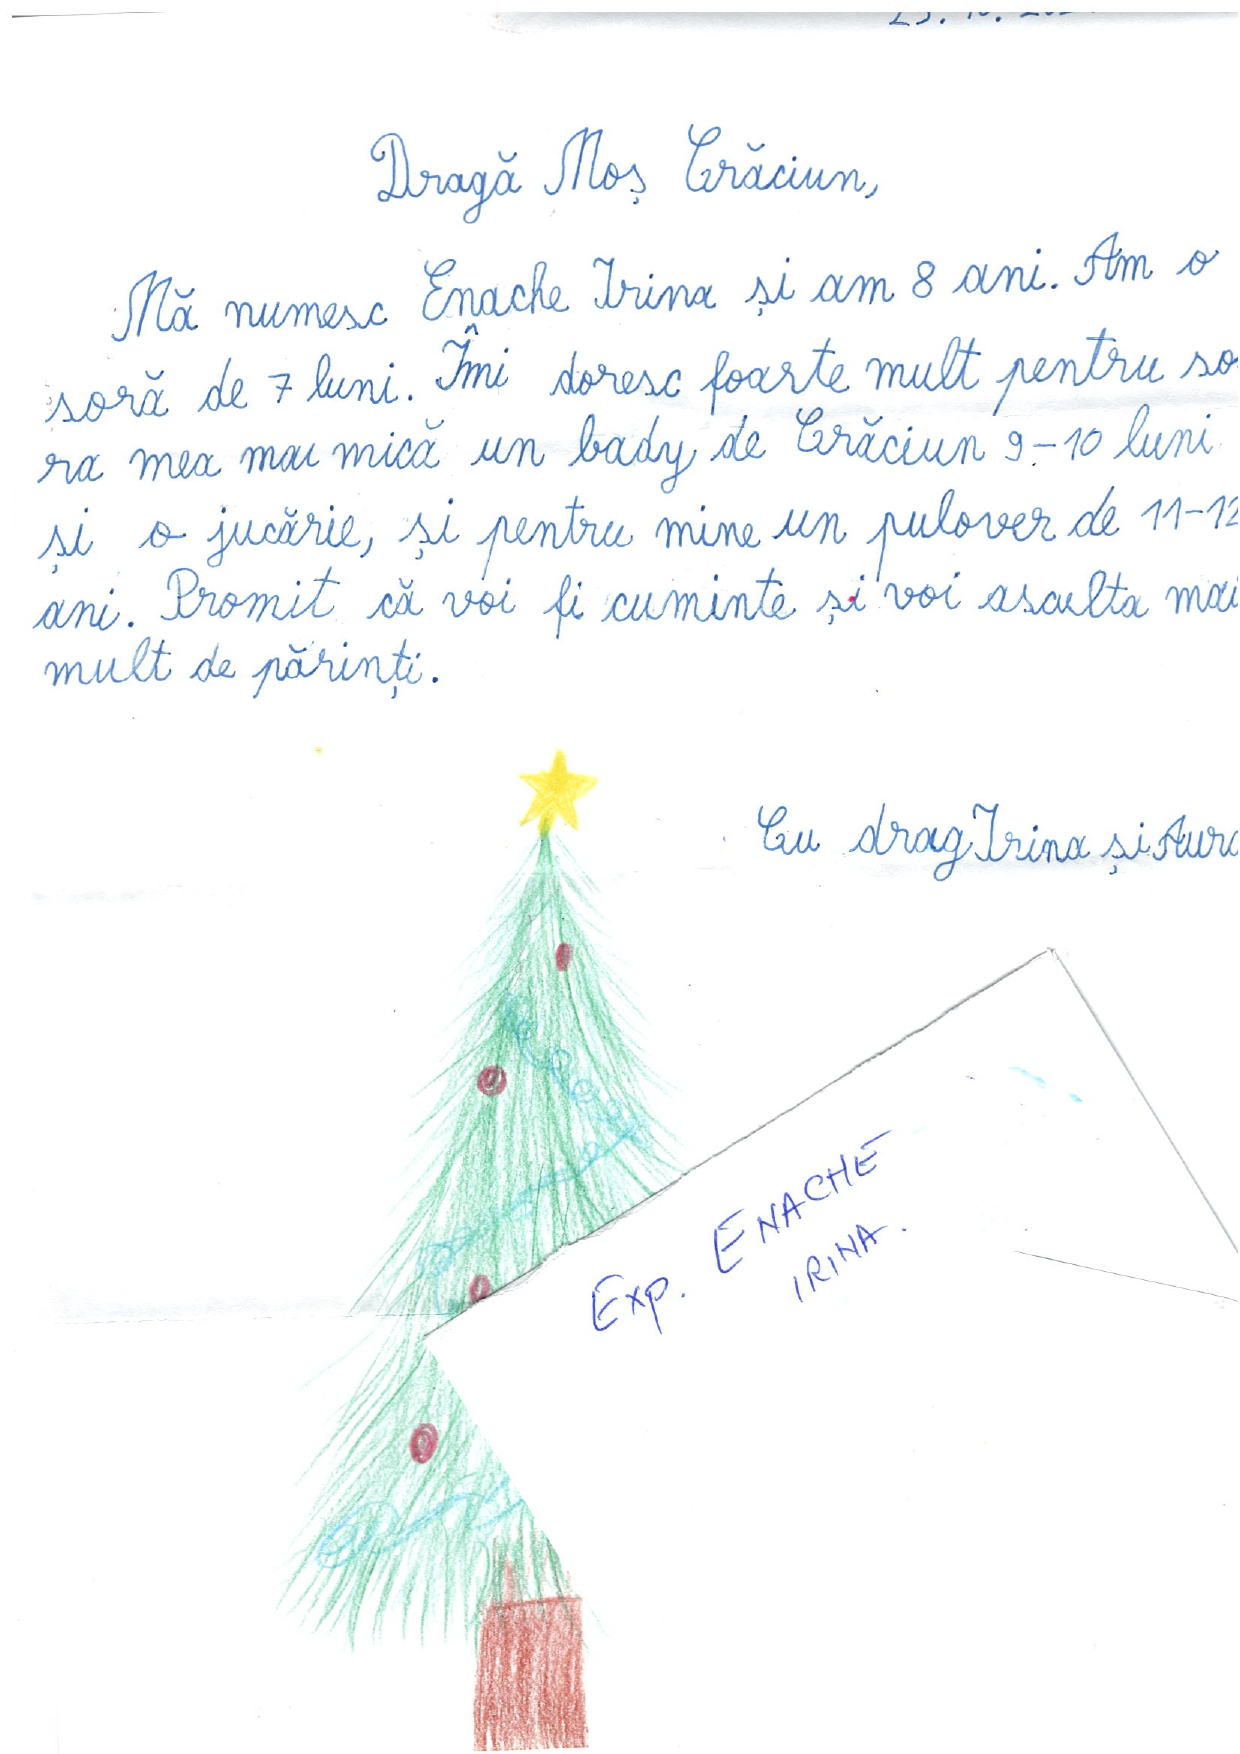 Dragă Moș Crăciun,
Mă numesc Enache Irina și am 8 ani. Am o
soră de 7 luni. Îmi doresc foarte mult pentru so
ra mea mai mică un bady de Crăciun 9-10 luni
și o jucărie, și pentru mine un pulover de 11-12
ani. Promit că voi fi cuminte și voi asculta mai
mult de părinți.
Cu drag Irina și
Exp. ENACHE
IRINA.